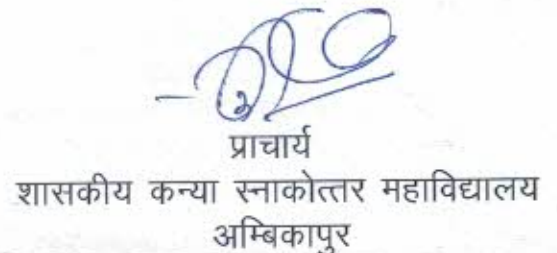 प्राचार्य
शासकीय कन्या स्नाकोत्तर महाविद्यालय
अम्बिकापुर